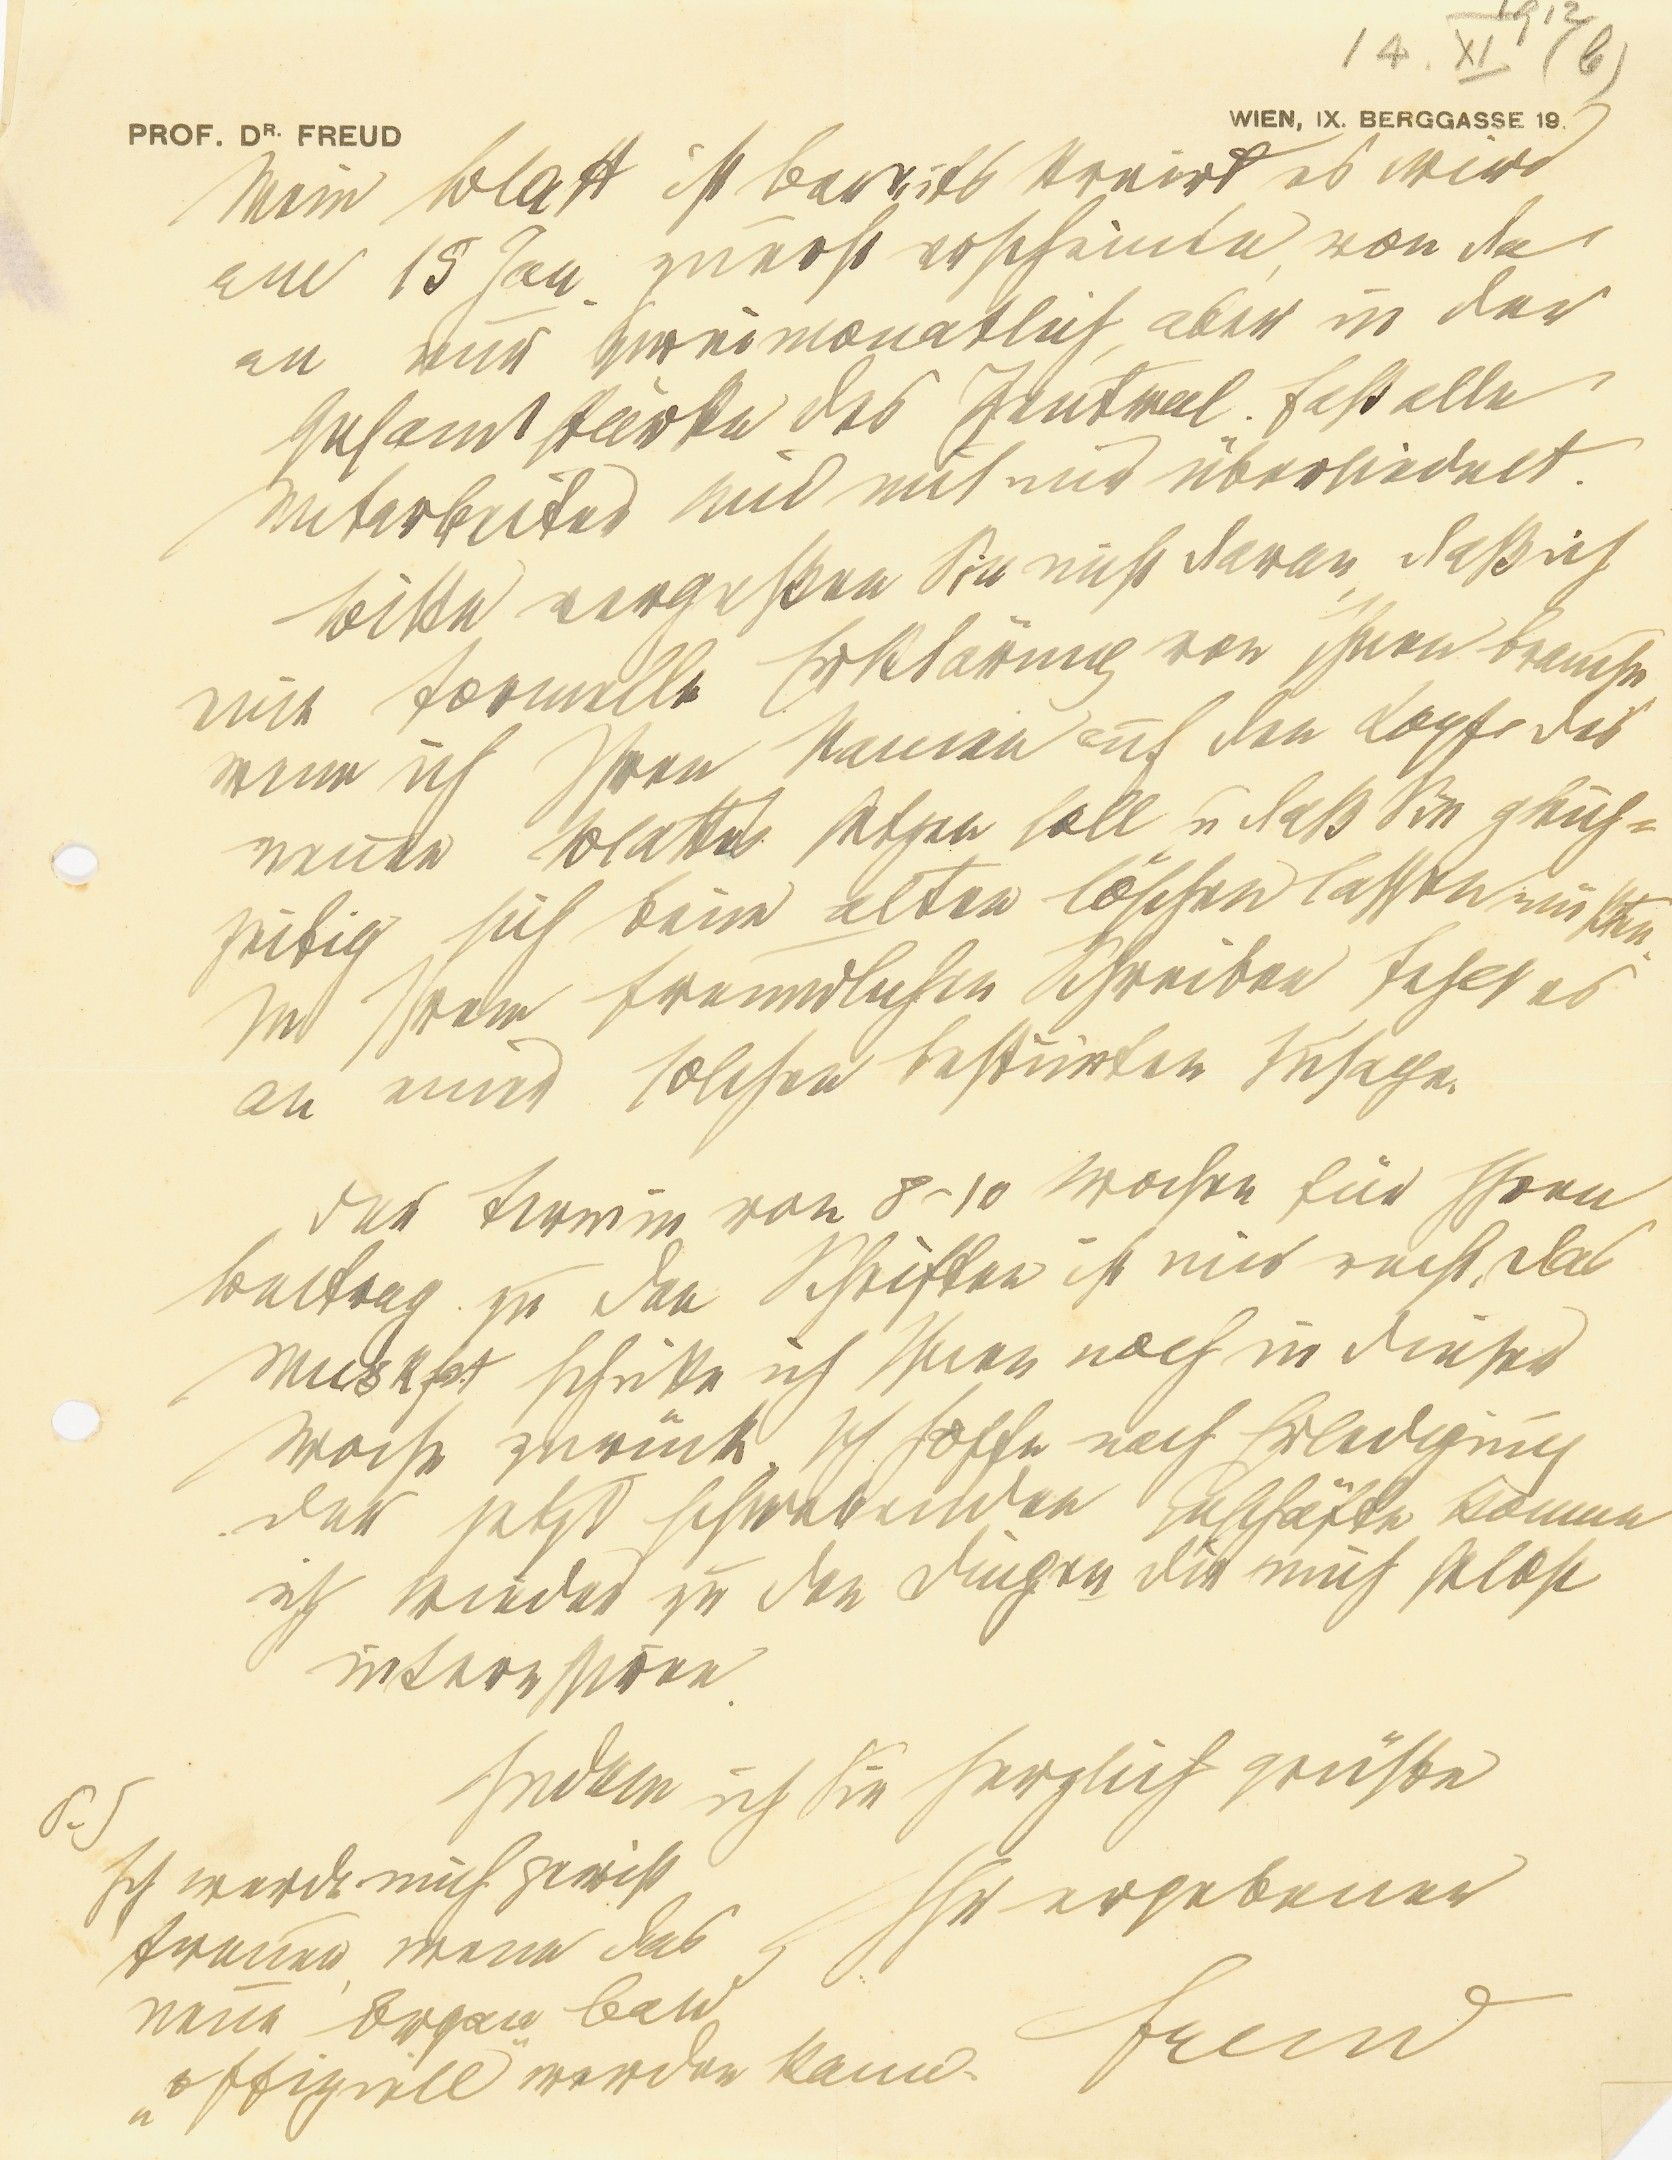 1912
14. XI (b)
PROF. DR. FREUD
WIEN, IX. BERGGASSE 19.
Mein Blatt ist bereits kreirt es wird
am 15 Jan. zuerst erscheinen, von da
an nur zweimonatlich, aber in der
Gesamtstärke des Zentral. Fast alle
Mitarbeiter sind mit mir übersiedelt.
Bitte vergessen Sie nicht daran, daß ich
eine formelle Erklärung von Ihnen brauche,
wenn ich Ihren Namen auf den Kopf des
neuen Blattes setzen soll u daß Sie gleich=
zeitig sich beim alten löschen lassen müßten.
In Ihrem freundlichen Schreiben fehlt es
an einer solchen bestimten Zusage.
Der Termin von 8-10 Wochen für Ihren
Beitrag zu den Schriften ist mir recht, das
Muskpt schicke ich Ihnen noch in dieser
Woche zurück. Ich hoffe nach Erledigung
der jetzt schwebenden Geschäfte komme
ich wieder zu den Dingen die mich selbst
interessiren.
Indem ich Sie herzlich grüße
Ihr ergebener
Freud
P.S
Ich werde mich gewiß
freuen, wenn das
neue Organ bald
„offiziell" werden kann.